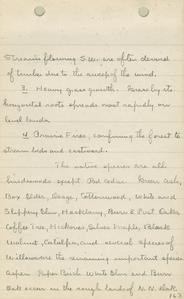 Streams flowing S.W. are often devoid
of timber due to the sweep of the wind.
3. Heavy grass growth. Grass by its
horizontal roots spreads most rapidly on
level lands.
4 Prairie Fires, confining the forest to
stream beds and eastward.
The native species are all
hardwoods except Red Cedar. Green Ash,
Box Elder, Cottonwood, White and
Slippery Elm, Hackberry, Burr & Post Oaks
Coffee Tree, Hickories, Silver Maple, Black
Walnut, Catalpa, and several species of
Willows are the remaining important species
Aspen Paper Birch White Elm and Burr
Oak occur in the rough lands of N. N. Dak.